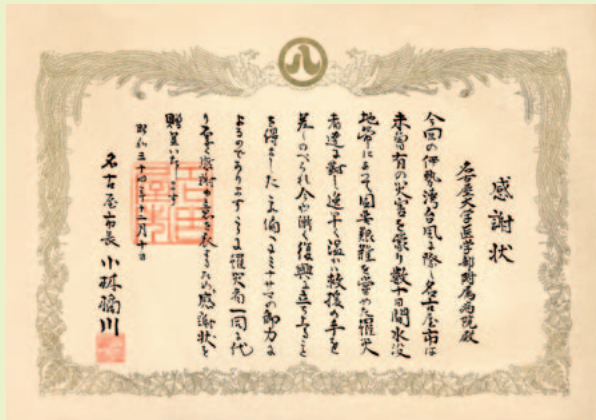 感謝状
名古屋大学医学部附属病院殿
今回の伊勢湾台風に際し名古屋市は
未曽有の災害を蒙り数十日間水没
地帯によって困苦艱難を嘗めた罹災
者達に対し逸早く温い救援の手を
差しのべられ今や漸く復興に立ち上ること
を得ました 之偏へにミナサマの御力に
よるのであります ここに罹災者一同に代
り厚く感謝の意を表するため感謝状を
贈呈いたします
昭和三十四年十二月十日
名古屋市長 小林橘川